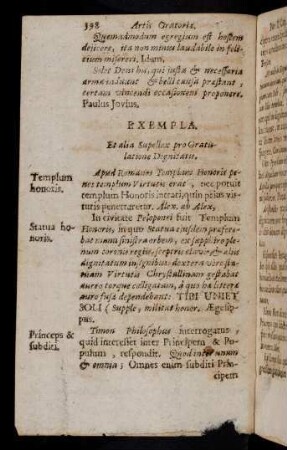 398 Artis Oratoriæ.
Quemadmodum egregium est hostem
dejicere, ita non minus laudabile in felicium misereri. Idem.
Solet Deus his, qui justa & necessaria
arma induunt & belli causâ præstant,
certam vincendi occasionem proponere.
Paulus Jovius.
EXEMPLA.
Et alia Supellex pro Gratulatione Dignitatis.
Templum
honoris.
Apud Romanos Templum Honoris penes templum Virtutis erat, nec potuit
templum Honoris intrari, quin prius virtutis penetraretur. Alex. ab Alex.
Statua honoris.
In civitate Peloponesi fuit Templum
Honoris, in quo Statua ejusdem præferebat manu sinistra orbem, ex
coronis regiis, sceptris clavis & aliis
dignitatum insignibus: dextera vero
Virtutis Chrystallinam gestabat
aureo torque colligatam, à qua hæ litteræ
auro fusæ dependebant: TIBI UNI ET
SOLI (Supple, militat honor. Ægesippus.
Princeps &
subditi.
Timon Philosophus interrogatus,
quid interesset inter Principem & Populum, respondit. Quod inter unum
& omnia; Omnes enim subditi Principem